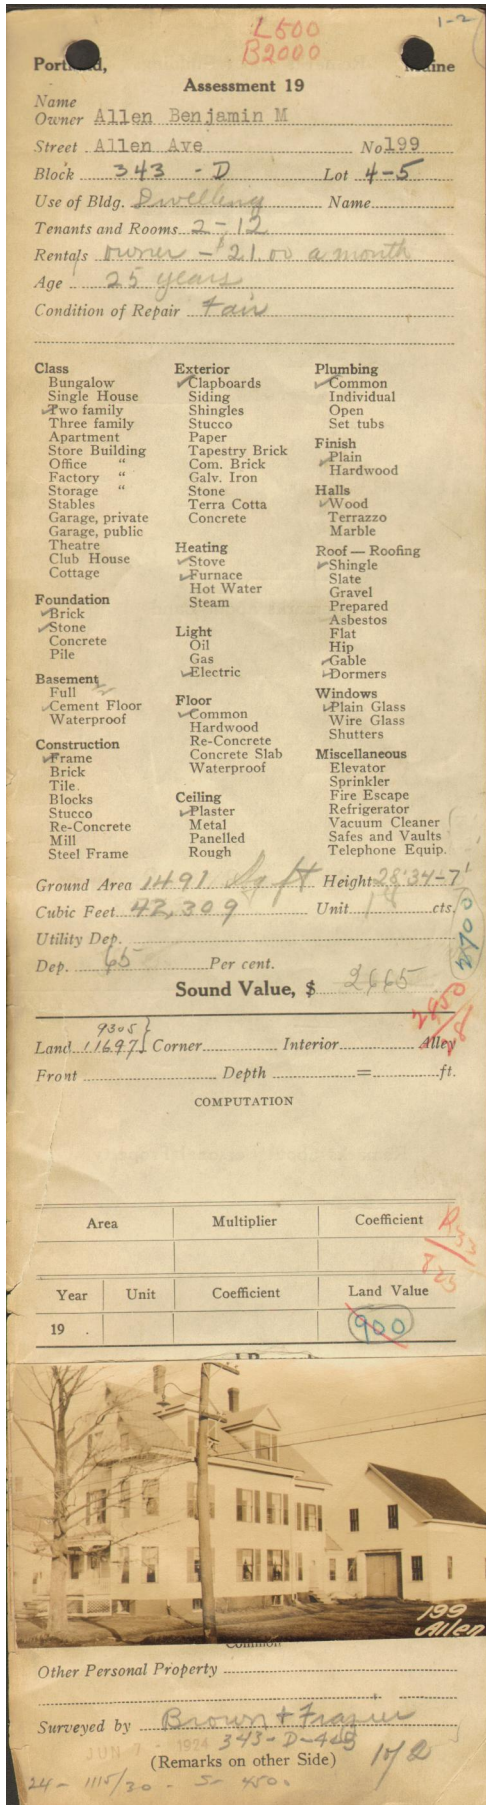 1-2
L500
B2000
Portland, Maine
Assessment 19
Name
Owner Allen Benjamin M
Street Allen Ave No 199
Block 343 - D Lot 4-5
Use of Bldg. Dwelling Name
Tenants and Rooms 2-12
Rentals owner - $21.00 a month
Age 25 years
Condition of Repair Fair
Class
Bungalow
Single House
Two family
Three family
Apartment
Store Building
Office "
Factory "
Storage "
Stables
Garage, private
Garage, public
Theatre
Club House
Cottage
Foundation
Brick
Stone
Concrete
Pile
Basement
Full
Cement Floor
Waterproof
Construction
Frame
Brick
Tile
Blocks
Stucco
Re-Concrete
Mill
Steel Frame
Exterior
Clapboards
Siding
Shingles
Stucco
Paper
Tapestry Brick
Com. Brick
Galv. Iron
Stone
Terra Cotta
Concrete
Heating
Stove
Furnace
Hot Water
Steam
Light
Oil
Gas
Electric
Floor
Common
Hardwood
Re-Concrete
Concrete Slab
Waterproof
Ceiling
Plaster
Metal
Panelled
Rough
Plumbing
Common
Individual
Open
Set tubs
Finish
Plain
Hardwood
Halls
Wood
Terrazzo
Marble
Roof — Roofing
Shingle
Slate
Gravel
Prepared
Asbestos
Flat
Hip
Gable
Dormers
Windows
Plain Glass
Wire Glass
Shutters
Miscellaneous
Elevator
Sprinkler
Fire Escape
Refrigerator
Vacuum Cleaner
Safes and Vaults
Telephone Equip.
Ground Area 1491 Sq ft Height 28'34-7'
Cubic Feet 42,309 Unit 18 cts.
Utility Dep.
Dep. 65 Per cent.
Sound Value, $ 2665
2700
2850
28
9305
Land 11697 Corner Interior Alley
Front Depth = ft.
COMPUTATION
Area Multiplier Coefficient
R33
825
Year Unit Coefficient Land Value
19 900
199
Allen
Common
Other Personal Property
Surveyed by Brown + Frasier
JUN 7 - 1924 343-D-4&5
(Remarks on other Side) 1 of 2
24 - 1115/30 - S- 450.